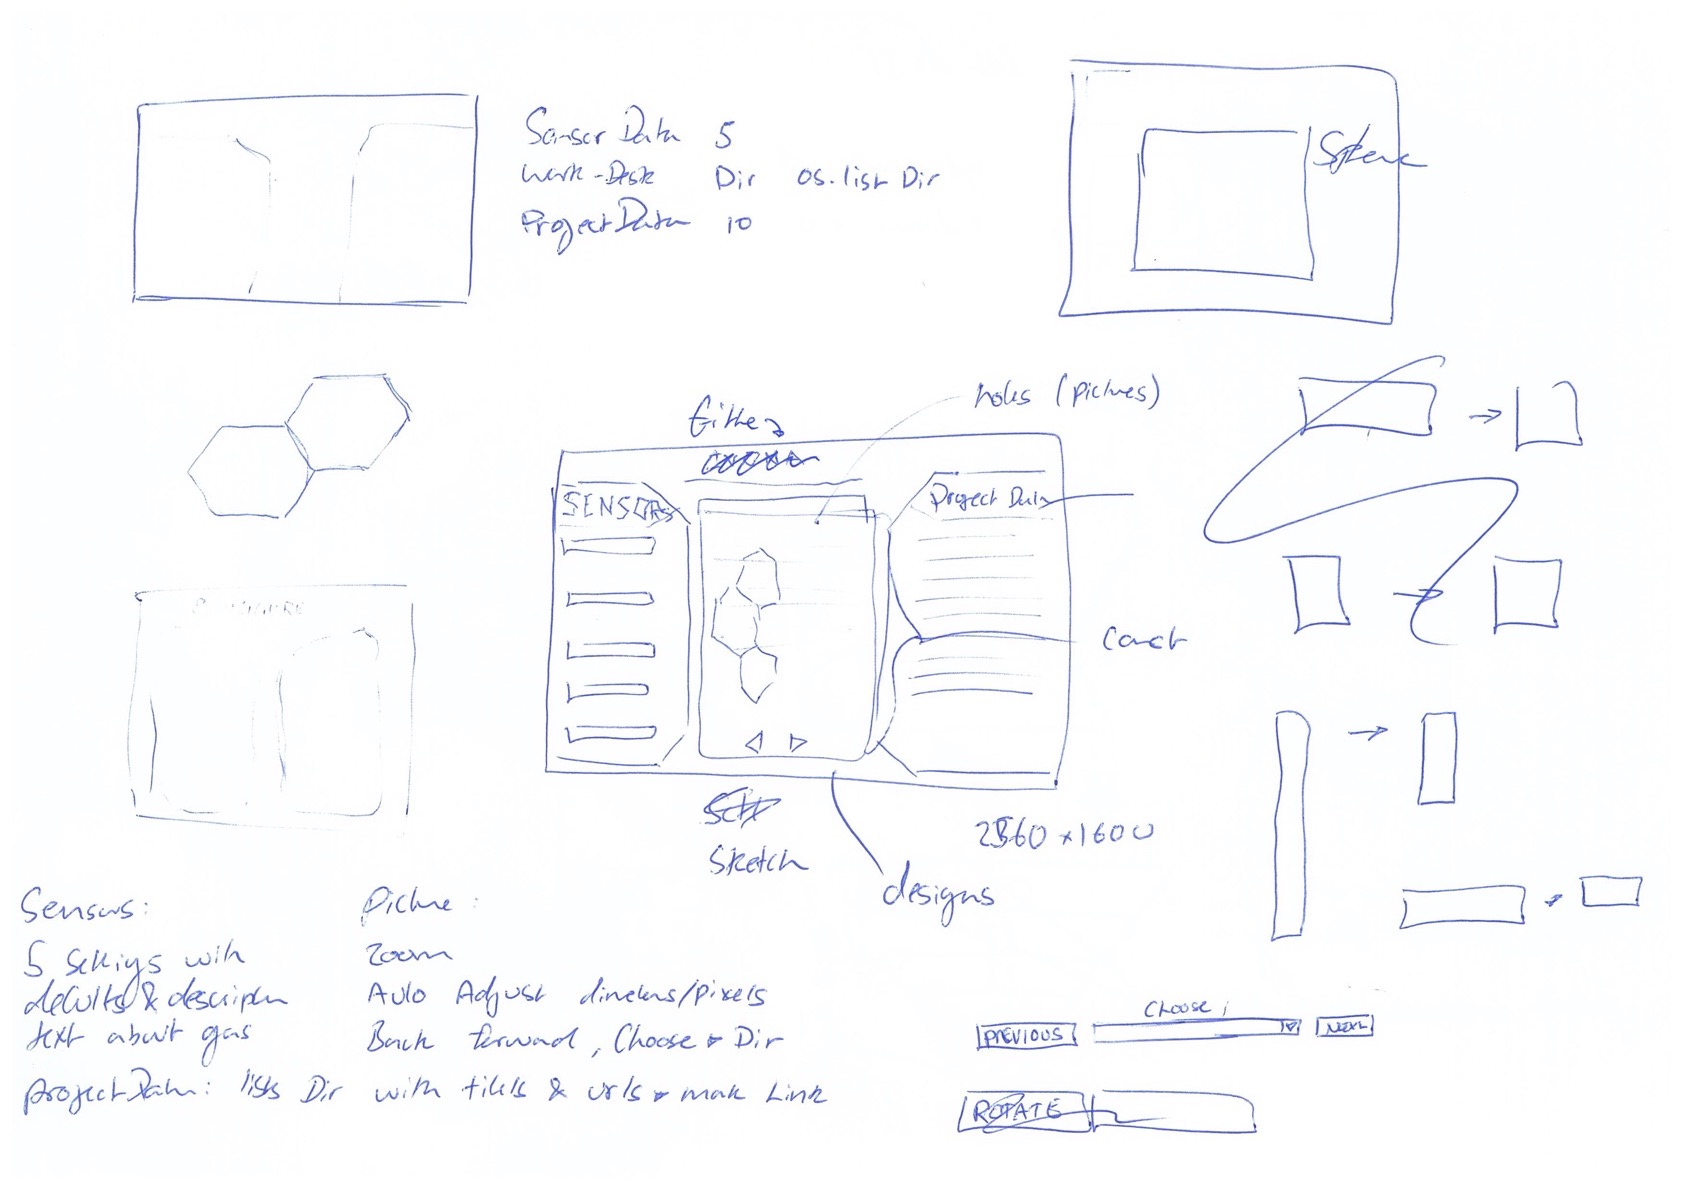 Sensor Data 5
Work-Desk Dir os.listDir
Project Data 10
holes (pictures)
Either
SENSORS
Project Data
2560 x 1600
Sketch
designs
Sensors:
5 settings with
defaults & description
text about gas
Picture:
Zoom
Auto Adjust /pixels
Back forward, Choose Dir
Project Data: lists Dir with titles & urls mak Link
Choose
PREVIOUS
NEXT
ROTATE